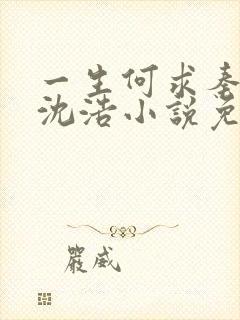 一生何求秦
沈浩小說免
嚴威